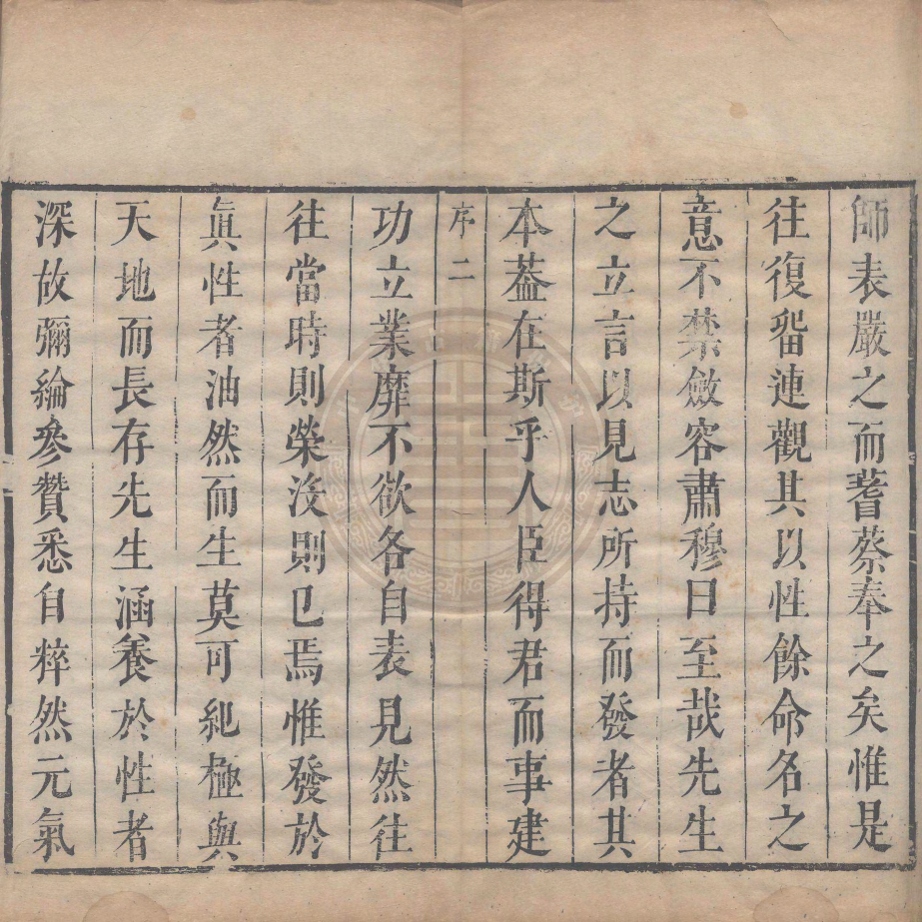 師表嚴之而蓍蔡奉之矣惟是
往復畱連觀其以性餘命名之
意不禁斂容肅穆曰至哉先生
之立言以見志所持而發者其
本葢在斯乎人臣得君而事建
序 二
功立業靡不欲各自表見然往
往當時則榮沒則已焉惟發於
眞性者油然而生莫可紀極與
天地而長存先生涵養於性者
深故彌綸參贊悉自粹然元氣